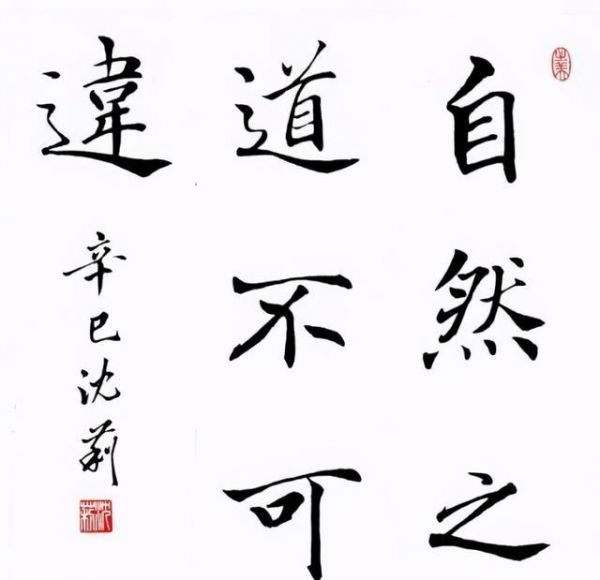 自然之
道不可
違
辛巳沈莉